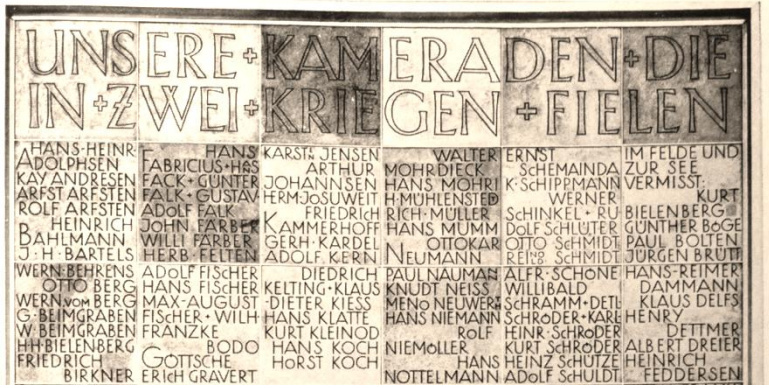 UNSERE + KAMERADEN + DIE
IN + ZWEI + KRIEGEN + FIELEN
HANS·HEINR·
ADOLPHSEN
KAY ANDRESEN
ARFST ARFSTEN
ROLF ARFSTEN
HEINRICH
BAHLMANN
J·H·BARTELS
WERN·BEHRENS
OTTO BERG
WERN.VOM BERG
G·BEIMGRABEN
W·BEIMGRABEN
H·H·BIELENBERG
FRIEDRICH
BIRKNER
HANS
FABRICIUS + HANS
FACK + GÜNTER
FALK + GUSTAV
ADOLF FALK
JOHN FÄRBER
WILLI FÄRBER
HERB·FELTEN
ADOLF FISCHER
HANS FISCHER
MAX·AUGUST
FISCHER + WILH·
FRANZKE
BODO
GOTTSCHE
ERICH GRAVERT
KARSTN JENSEN
ARTHUR
JOHANNSEN
HERM·JOSUWEIT
FRIEDRICH
KAMMERHOFF
GERH·KARDEL
ADOLF KERN
DIEDRICH
KELTING + KLAUS
·DIETER KIESS
HANS KLATTE
KURT KLEINOD
HANS KOCH
HORST KOCH
WALTER
MOHRDIECK
HANS MOHR
H·MÜHLENSTED
RICH·MÜLLER
HANS MUMM
OTTOKAR
NEUMANN
PAUL NAUMAN
KNUDT NEISS
MENO NEUWER
HANS NIEMANN
ROLF
NIEMÖLLER
HANS
NOTTELMANN
ERNST
SCHEMAINDA
K·SCHIPPMANN
WERNER
SCHINKEL + RU
DOLF SCHLÜTER
OTTO SCHMIDT
SCHMIDT
ALFR·SCHÖNE
WILLIBALD
SCHRAMM + DETL
SCHRÖDER + KARL
HEINR·SCHRÖDER
KURT SCHRÖDER
HEINZ SCHÜTZE
ADOLF SCHULDT
IM FELDE UND
ZUR SEE
VERMISST:
KURT
BIELENBERG
GÜNTHER BÖGE
PAUL BOLTEN
JÜRGEN BRÜTT
HANS·REIMER
DAMMANN
KLAUS DELFS
HENRY
DETTMER
ALBERT DREIER
HEINRICH
FEDDERSEN